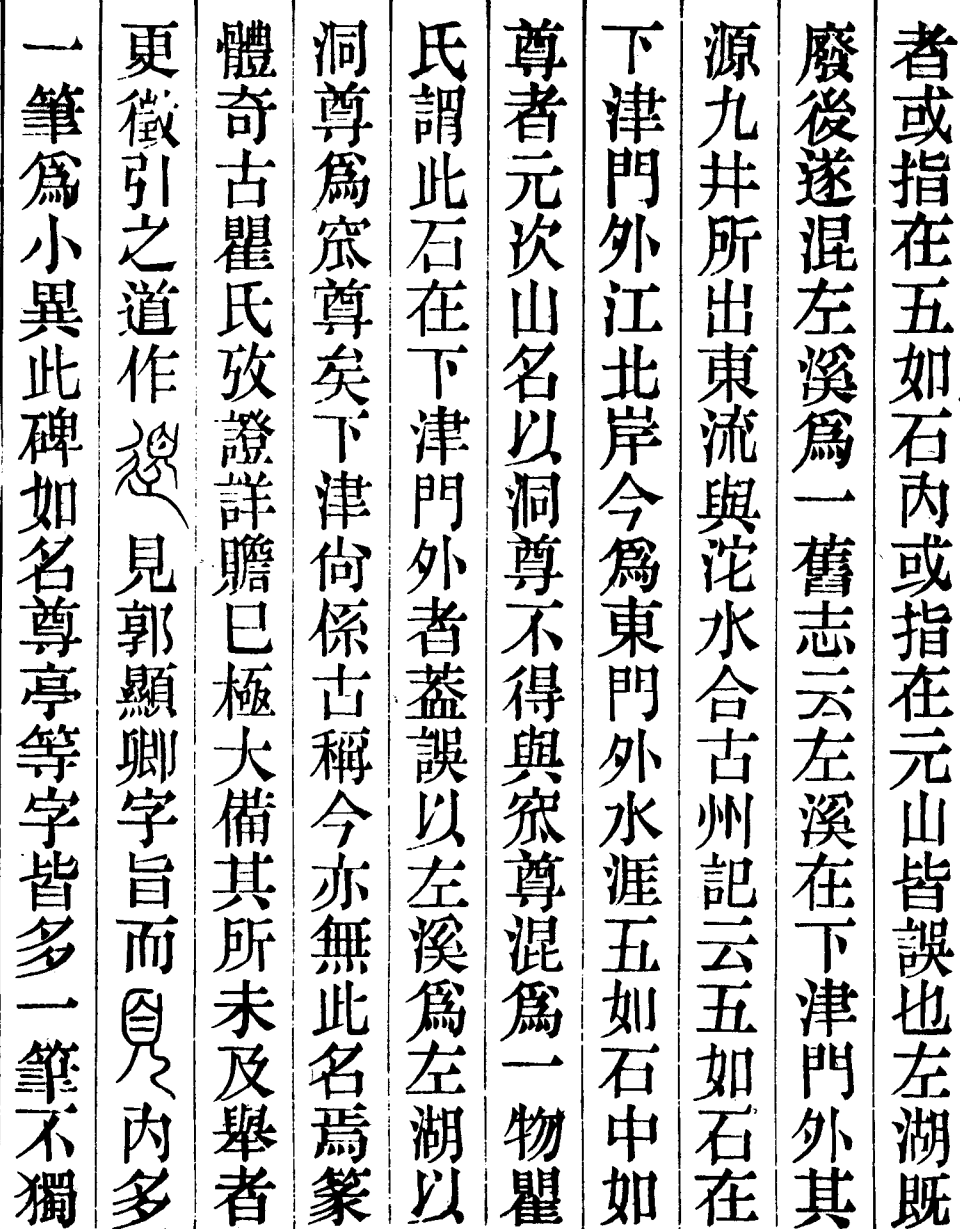 者或指在五如石內或指在元山皆誤也左湖既
廢後遂混左溪爲一舊志云左溪在下津門外其
源九井所出東流與沱水合古州記云五如石在
下津門外江北岸今爲東門外水涯五如石中如
尊者元次山名以洞尊不得與窊尊混爲一物瞿
氏謂此石在下津門外者葢誤以左溪爲左湖以
洞尊爲窊尊矣下津尙係古稱今亦無此名焉篆
體奇古瞿氏攷證詳贍巳極大備其所未及舉者
更徵引之道作見郭顯卿字旨而內多
一筆爲小異此碑如名尊亭等字皆多一筆不獨